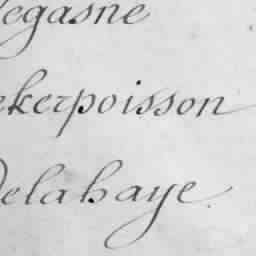 Legasne
ekerpoisson
Delahaye.